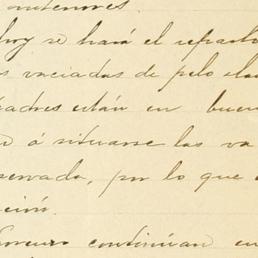 anteriores.
hoy se hará el reparto
s vaciadas de pelo
padres están en buen
o á situarse las va
servada, por lo que
ción.
continúan en